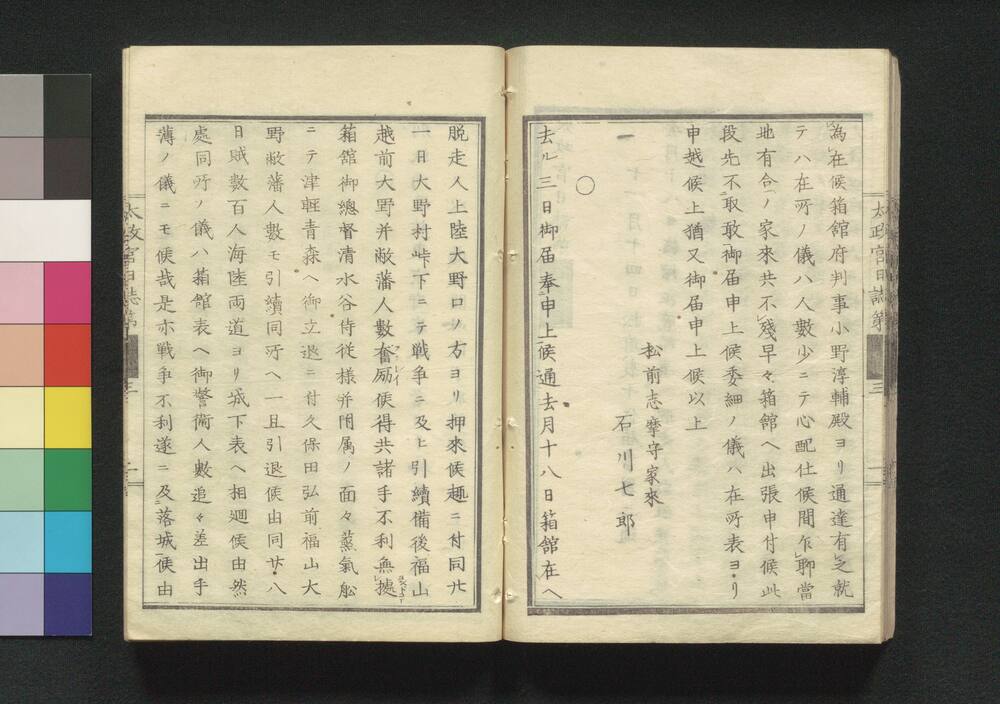 為在候箱館府判事小野淳輔殿ヨリ通達有之就
テハ在所ノ儀ハ人數少ニテ心配仕候間乍聊當
地有合ノ家來共不殘早々箱館ヘ出張申付候此
段先不取敢御届申上候委細ノ儀ハ在所表ヨリ
申越候上猶又御届申上候以上
松前志摩守家來
一 石川七郎
○
去ル三日御届奉申上候通去月十八日箱館在ヘ
脱走人上陸大野口ノ方ヨリ押來候趣ニ付同廿
一日大野村峠下ニテ戰争ニ及ヒ引續備後福山
越前大野并敝藩人數奮励候得共諸手不利無據
箱舘御總督清水谷侍従様并附属ノ面々蒸氣舩
ニテ津軽青森ヘ御立退ニ付久保田弘前福山大
野敝藩人數モ引續同所ヘ一旦引退候由同廿八
日賊數百人海陸両道ヨリ城下表ヘ相廻候由然
處同所ノ儀ハ箱館表ヘ御警衛人數追々差出手
薄ノ儀ニモ候哉是亦戦争不利遂ニ及落城候由
太政官日誌第
三
太政官日誌第
三